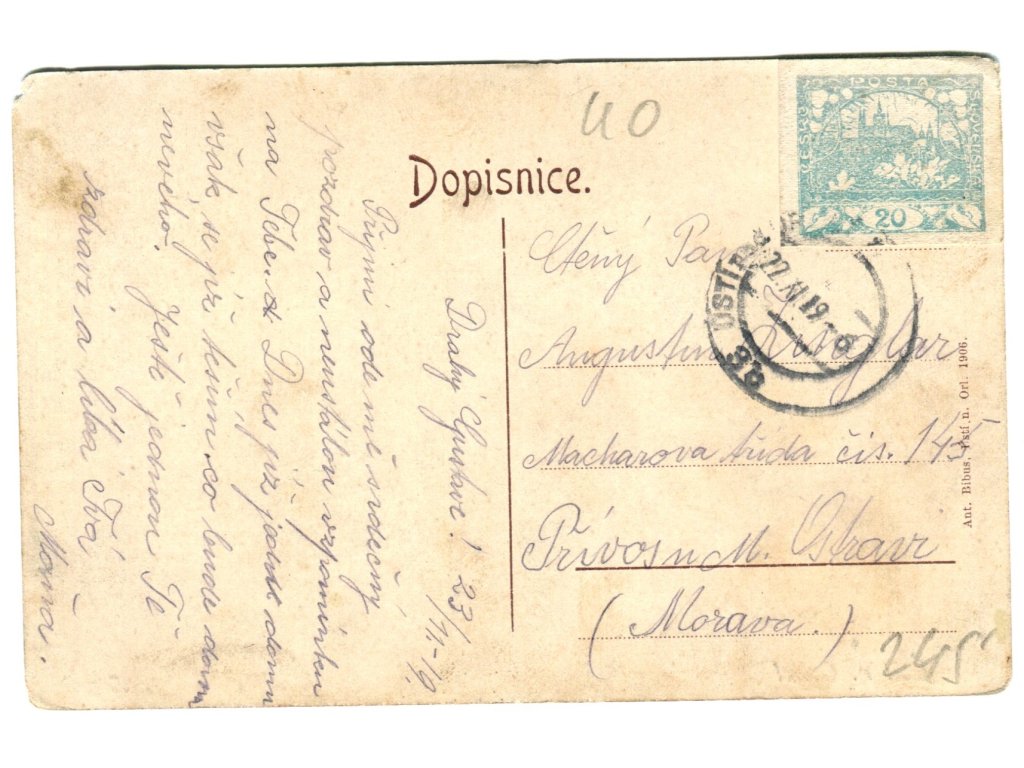 40
Dopisnice.
POSTA
ČESKO-SLOVENSKÁ
20
ÚSTÍ
22.XI.19
9b
Ctěný Pan
Augustin
Macharova třída čís. 145
Přívos u M. Ostravi
(Morava.)
245
Ant. Bibus, Ústí n. Orl. 1906.
Drahý Gustave! 23/11-19.
Přijmi ode mě srdečný
pozdrav a neustálou vzpomínku
na Tebe. Dnes již jedu domu
však se již těším co bude doma
nového. Ještě jednou Tě
zdraví a líbá Tvá
Mařa.